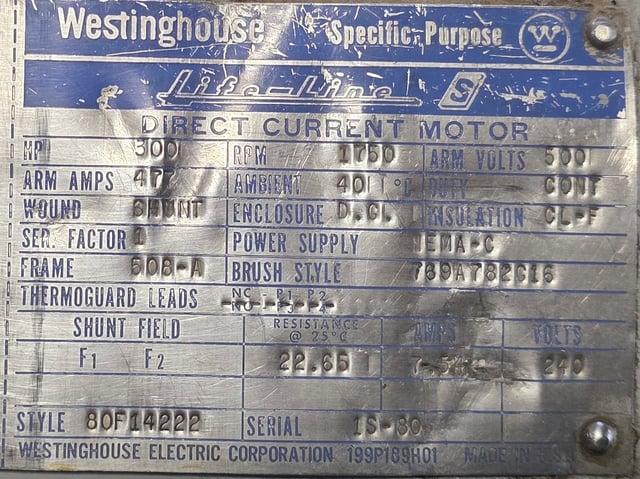 Westinghouse Specific Purpose W
Life-Line
DIRECT CURRENT MOTOR
HP 300 RPM 1750 ARM VOLTS 500
ARM AMPS AMBIENT 40 °C DUTY CONT
WOUND SHUNT ENCLOSURE INSULATION CL-F
SER. FACTOR 1 POWER SUPPLY NEMA-C
FRAME 508-A BRUSH STYLE 789A782G16
THERMOGUARD LEADS NC - P1 - P2
NO - P3 - P4
SHUNT FIELD RESISTANCE @ 25°C AMPS VOLTS
F1 F2 22.65 240
STYLE 80F14222 SERIAL 1S-80
WESTINGHOUSE ELECTRIC CORPORATION 199P189H01 MADE IN